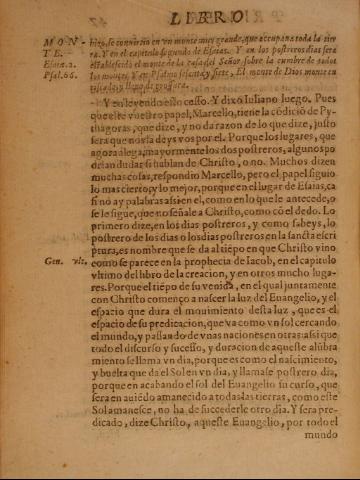 LIBRO
MON- higo, se conuirtio en vn monte muy grande, que occupaua toda la tier
TE. ra. Y en el capitulo segundo de Esaias. Y en los postreros dias sera
Esaia.2. establescido el monte de la casa del Señor, sobre la cumbre de todos
Psal.66. los montes. Y en Psalmo sesenta y siete, El monte de Dios monte en
Y en leyendo esto cesso. Y dixo Iuliano luego. Pues
que este vuestro papel, Marcello, tiene la cõdiciõ de Py-
thagoras, que dize, y no da razon de lo que dize, justo
sera que nos la deys vos por el. Porque los lugares, que
agora alega, mayormente los dos postreros, algunos po
drian dudar si hablan de Christo, o no. Muchos dizen
muchas cosas, respondio Marcello, pero el papel siguio
lo mas cierto, y lo mejor, porque en el lugar de Esaias, ca
si no ay palabras assi en el, como en lo que le antecede, o
se le sigue, que no señale a Christo, como cõ el dedo. Lo
primero dize, en los dias postreros, y como sabeys, lo
postrero de los dias o los dias postreros en la sancta escri
ptura, es nombre que se da al tiẽpo en que Christo vino
Gen. vlt. como se parece en la prophecia de Iacob, en el capitulo
vltimo del libro de la creacion, y en otros mucho luga-
res. Porque el tiẽpo de su venida, en el qual juntamente
con Christo començo a nascer la luz del Euangelio, y el
espacio que dura el mouimiento desta luz, que es el
espacio de su predicacion, que va como vn sol cercando
el mundo, y passando de vnas naciones en otras: assi que
todo el discurso y sucesso, y duracion de aqueste alũbra
miento se llama vn dia, porque es como el nascimiento,
y buelta que da el Sol en vn dia, y llamase postrero dia,
porque en acabando el sol del Euangelio su curso, que
sera en auiẽdo amanecido a todas las tierras, como este
Sol amanesce, no ha de succederle otro dia. Y sera pre-
dicado, dize Christo, aqueste Euangelio, por todo el
mundo